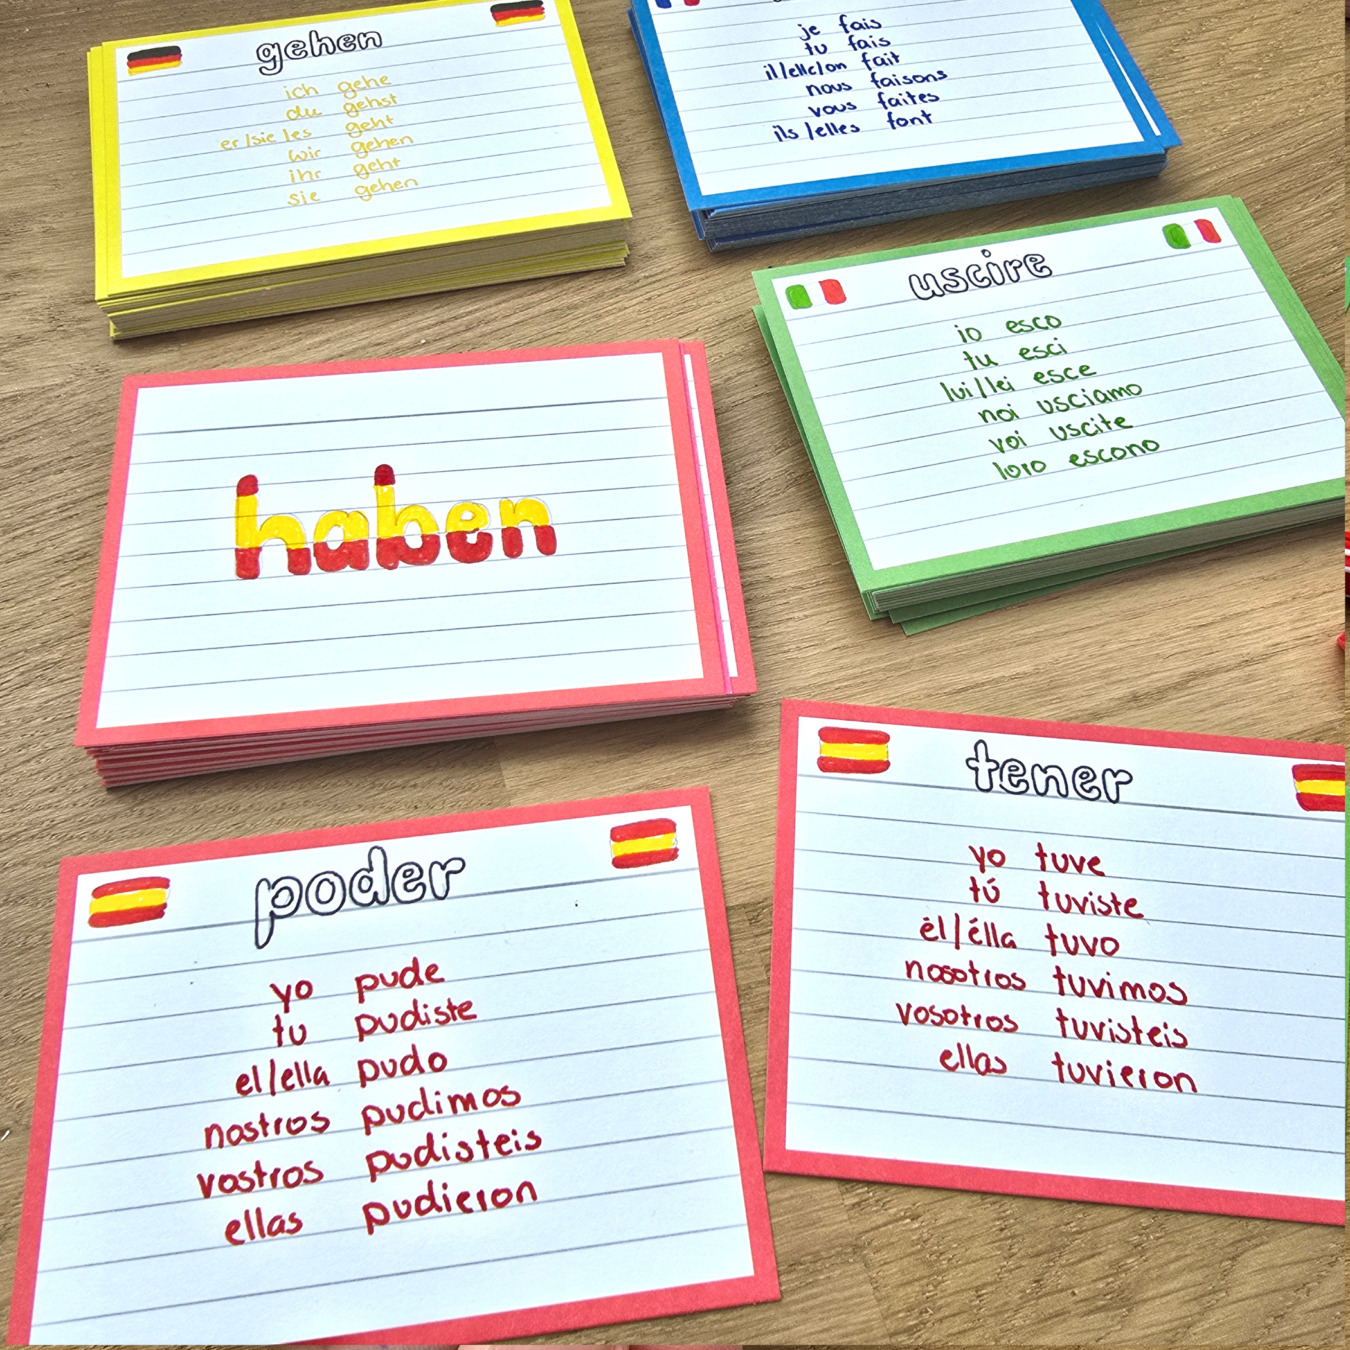 gehen
ich gehe
du gehst
er/sie/es geht
wir gehen
ihr geht
sie gehen
je fais
tu fais
il/elle/on fait
nous faisons
vous faites
ils/elles font
uscire
io esco
tu esci
lui/lei esce
noi usciamo
voi uscite
loro escono
haben
poder
yo pude
tu pudiste
el/ella pudo
nostros pudimos
vostros pudisteis
ellas pudieron
tener
yo tuve
tú tuviste
él/élla tuvo
nosotros tuvimos
vosotros tuvisteis
ellas tuvieron